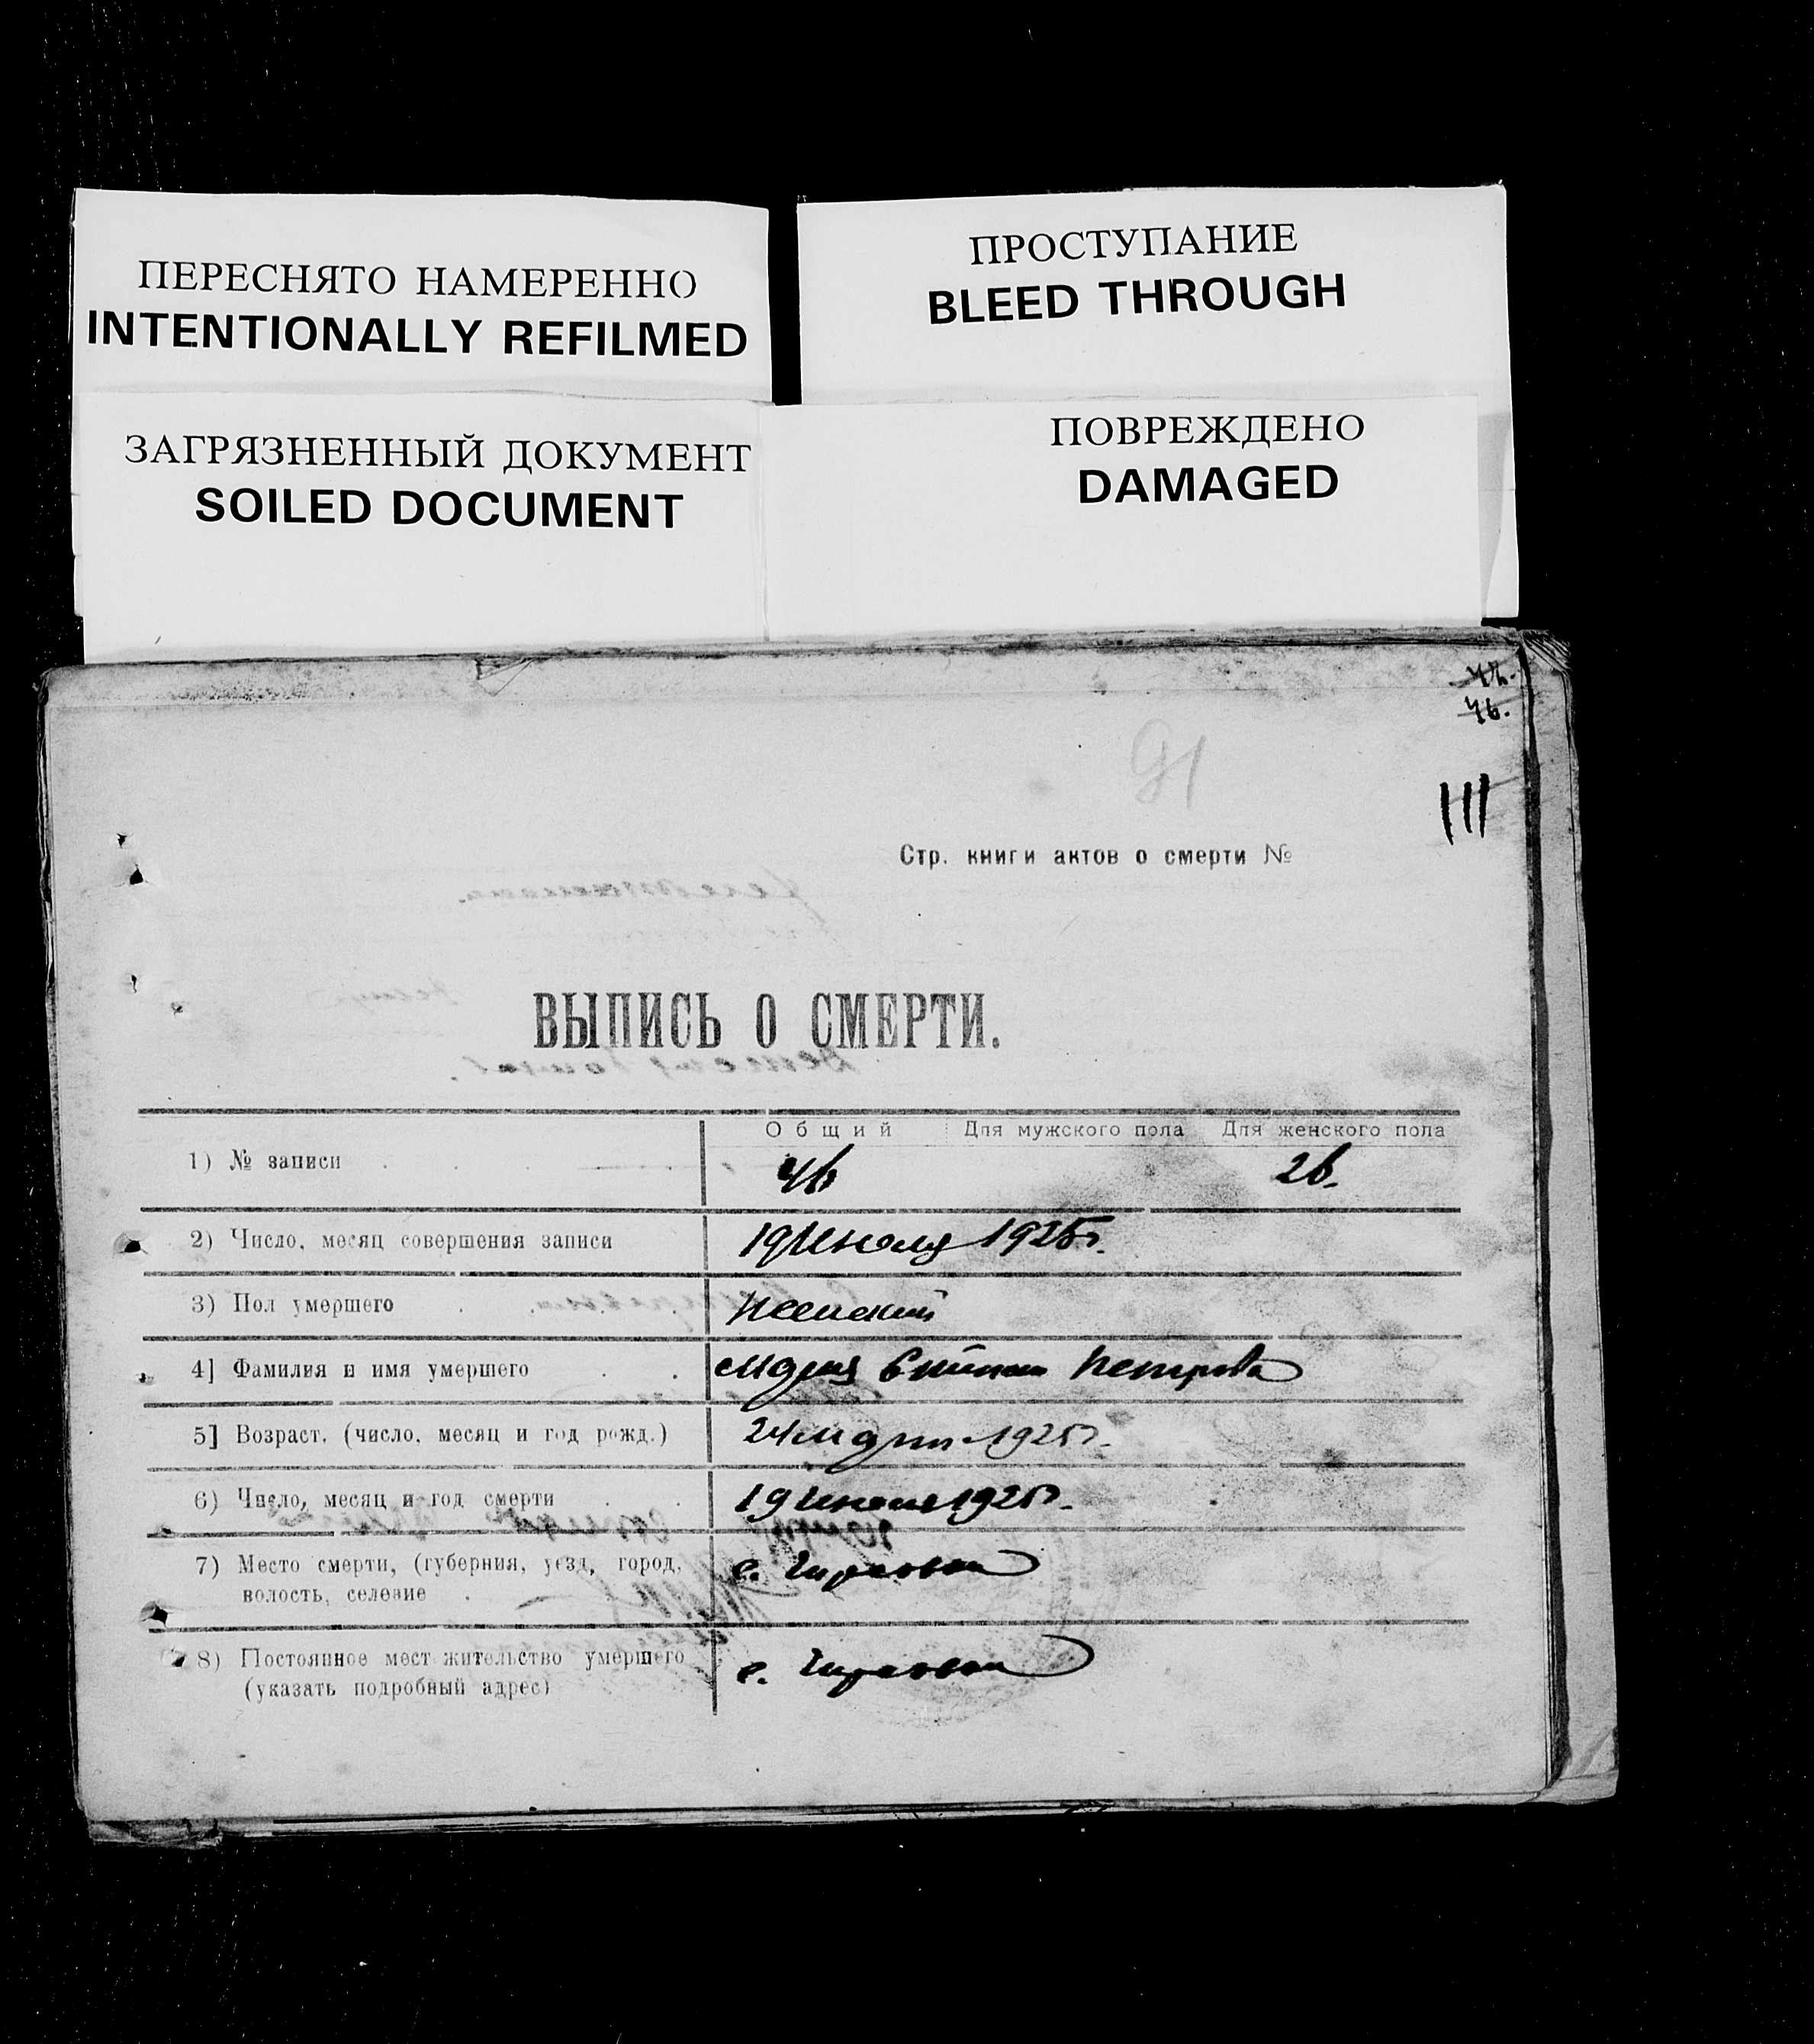 ПЕРЕСНЯТО НАМЕРЕННО
INTENTIONALLY REFILMED
ПРОСТУПАНИЕ
BLEED THROUGH
ЗАГРЯЗНЕННЫЙ ДОКУМЕНТ
SOILED DOCUMENT
ПОВРЕЖДЕНО
DAMAGED
46.
91
111
Стр. книги актов о смерти №
ВЫПИСЬ О СМЕРТИ.
Общий Для мужского пола Для женского пола
1) № записи 46 26.
2) Число, месяц совершения записи 19 Июля 1925г.
3) Пол умершего Женский
4] Фамилия и имя умершего Мария Петрова
5] Возраст, (число, месяц и год рожд.) 24 марта 1925г.
6) Число, месяц и год смерти 19 Июля 1925г.
7) Место смерти, (губерния, уезд, город,
волость, селение с.
8) Постоянное мест жительство умершего
(указать подробный адрес) с.